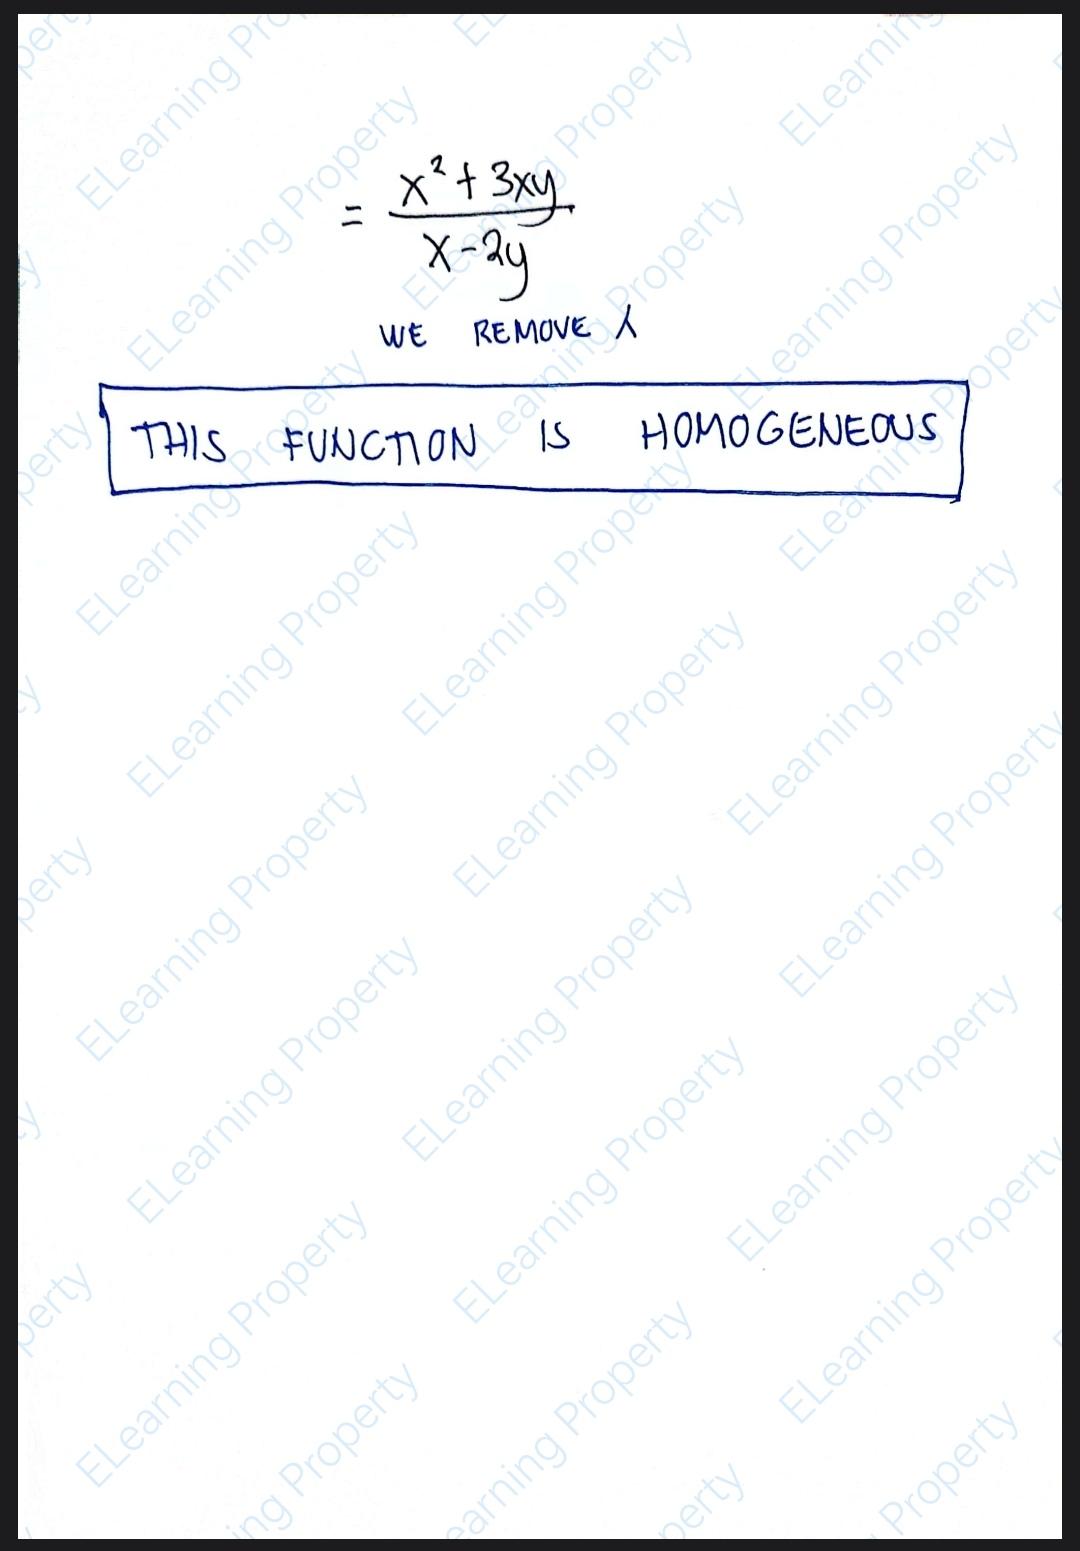 = x² + 3xy / x - 2y
WE REMOVE λ
THIS FUNCTION IS HOMOGENEOUS
ELearning Property